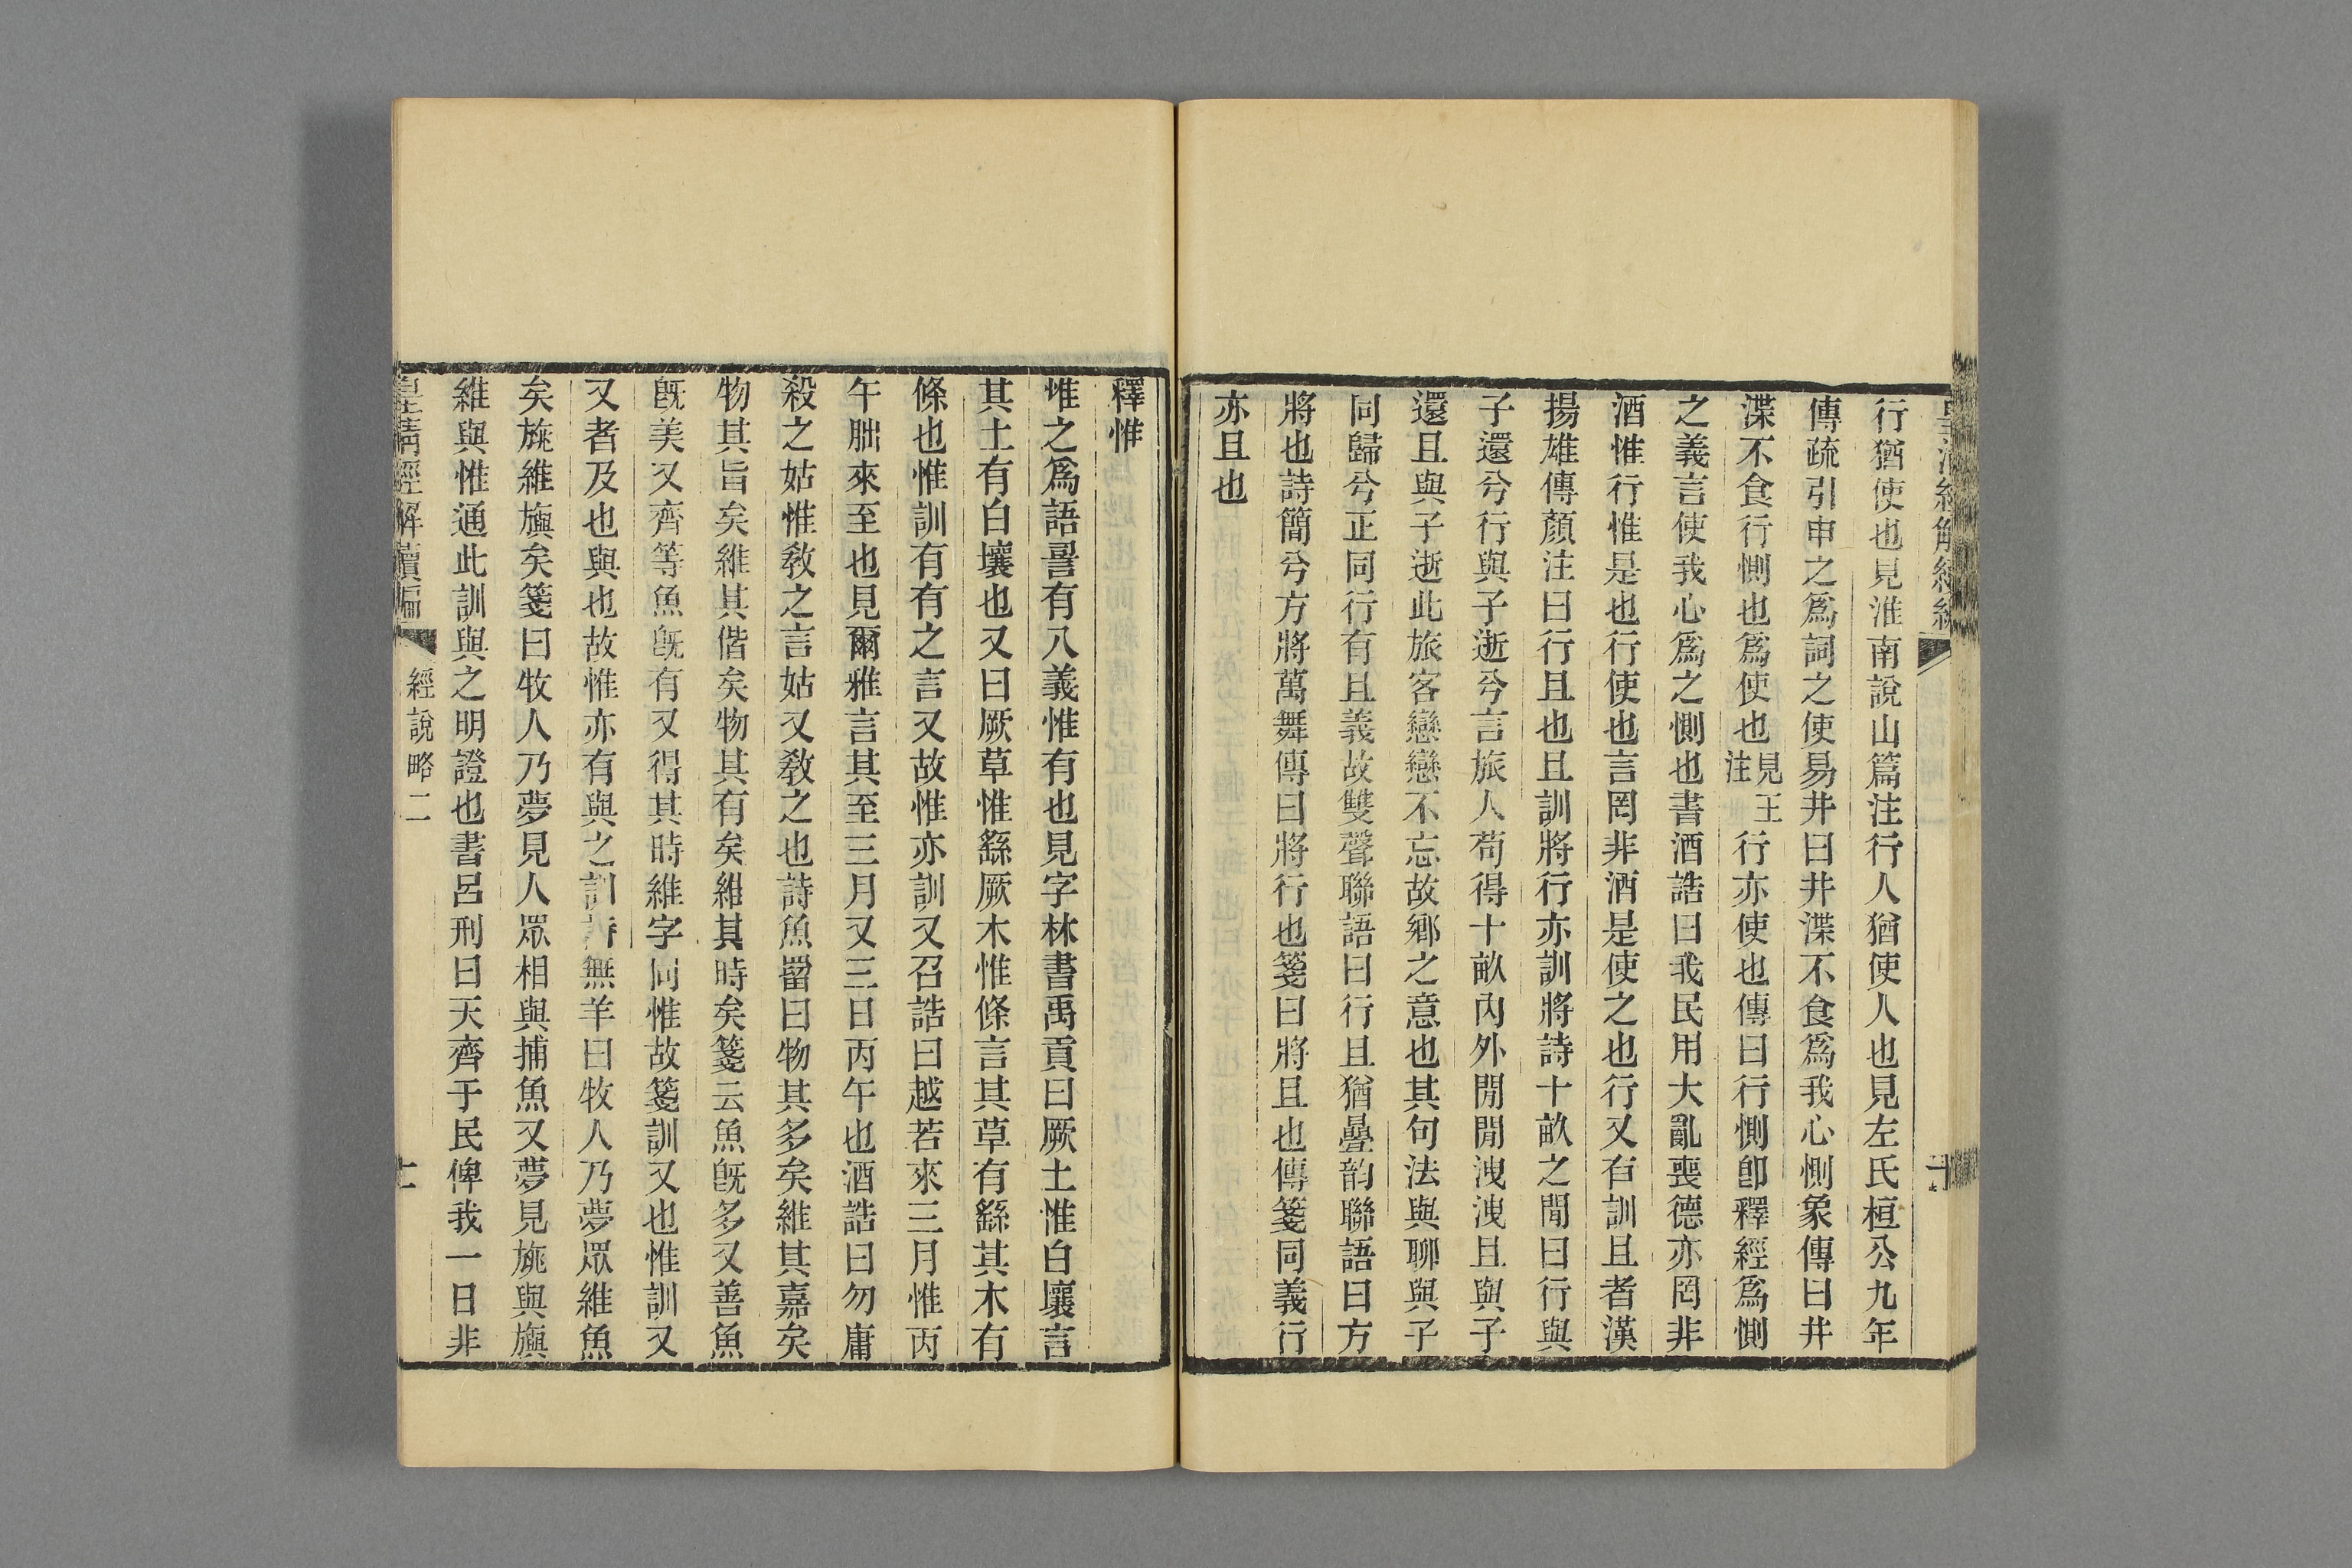 行猶使也見淮南說山篇注行人猶使人也見左氏桓公九年
傳疏引申之爲詞之使易井曰井渫不食爲我心惻象傳曰井
渫不食行惻也爲使也見王注行亦使也傳曰行惻卽釋經爲惻
之義言使我心爲之惻也書酒誥曰我民用大亂喪德亦罔非
酒惟行惟是也行使也言罔非酒是使之也行又有訓且者漢
揚雄傳顏注曰行且也且訓將行亦訓將詩十畝之閒曰行與
子還兮行與子逝兮言旅人苟得十畝內外閒閒洩洩且與子
還且與子逝此旅客戀戀不忘故鄉之意也其句法與聊與子
同歸兮正同行有且義故雙聲聯語曰行且猶疊韵聯語曰方
將也詩簡兮方將萬舞傳曰將行也箋曰將且也傳箋同義行
亦且也
釋惟
惟之爲語詈有八義惟有也見字林書禹貢曰厥土惟白壤言
其土有白壤也又曰厥草惟繇厥木惟條言其草有繇其木有
條也惟訓有有之言又故惟亦訓又召誥曰越若來三月惟丙
午朏來至也見爾雅言其至三月又三日丙午也酒誥曰勿庸
殺之姑惟敎之言姑又敎之也詩魚罶曰物其多矣維其嘉矣
物其旨矣維其偕矣物其有矣維其時矣箋云魚旣多又善魚
旣美又齊等魚旣有又得其時維字同惟故箋訓又也惟訓又
又者及也與也故惟亦有與之訓詩無羊曰牧人乃夢眾維魚
矣旐維旟矣箋曰牧人乃夢見人眾相與捕魚又夢見旐與旟
維與惟通此訓與之明證也書呂刑曰天齊于民俾我一日非
皇清經解續編 經說略二 十一